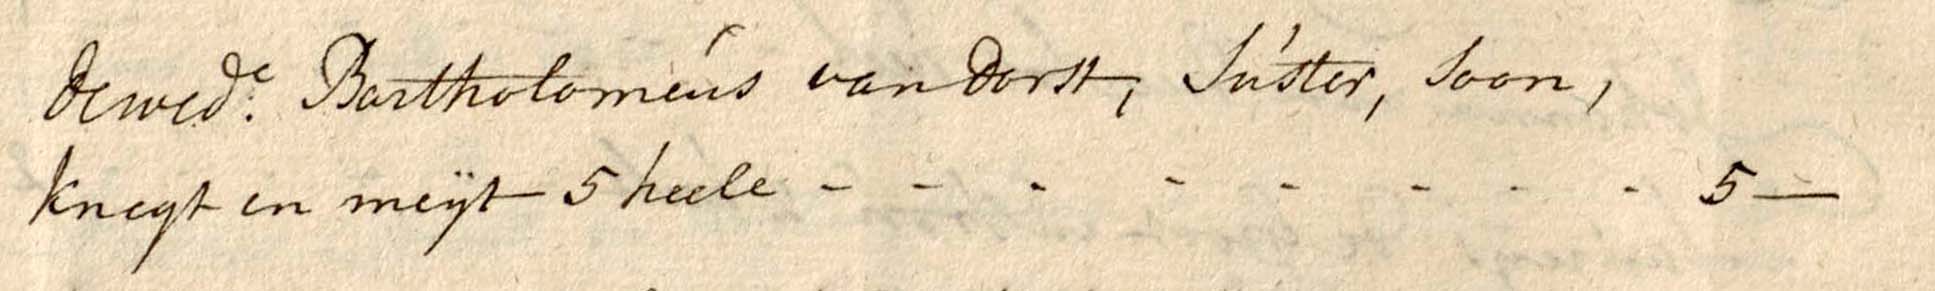 de wed.e Bartholomeus van Dorst, Suster, Soon,
knegt en meÿt 5 heele - - - - - - - - 5 —